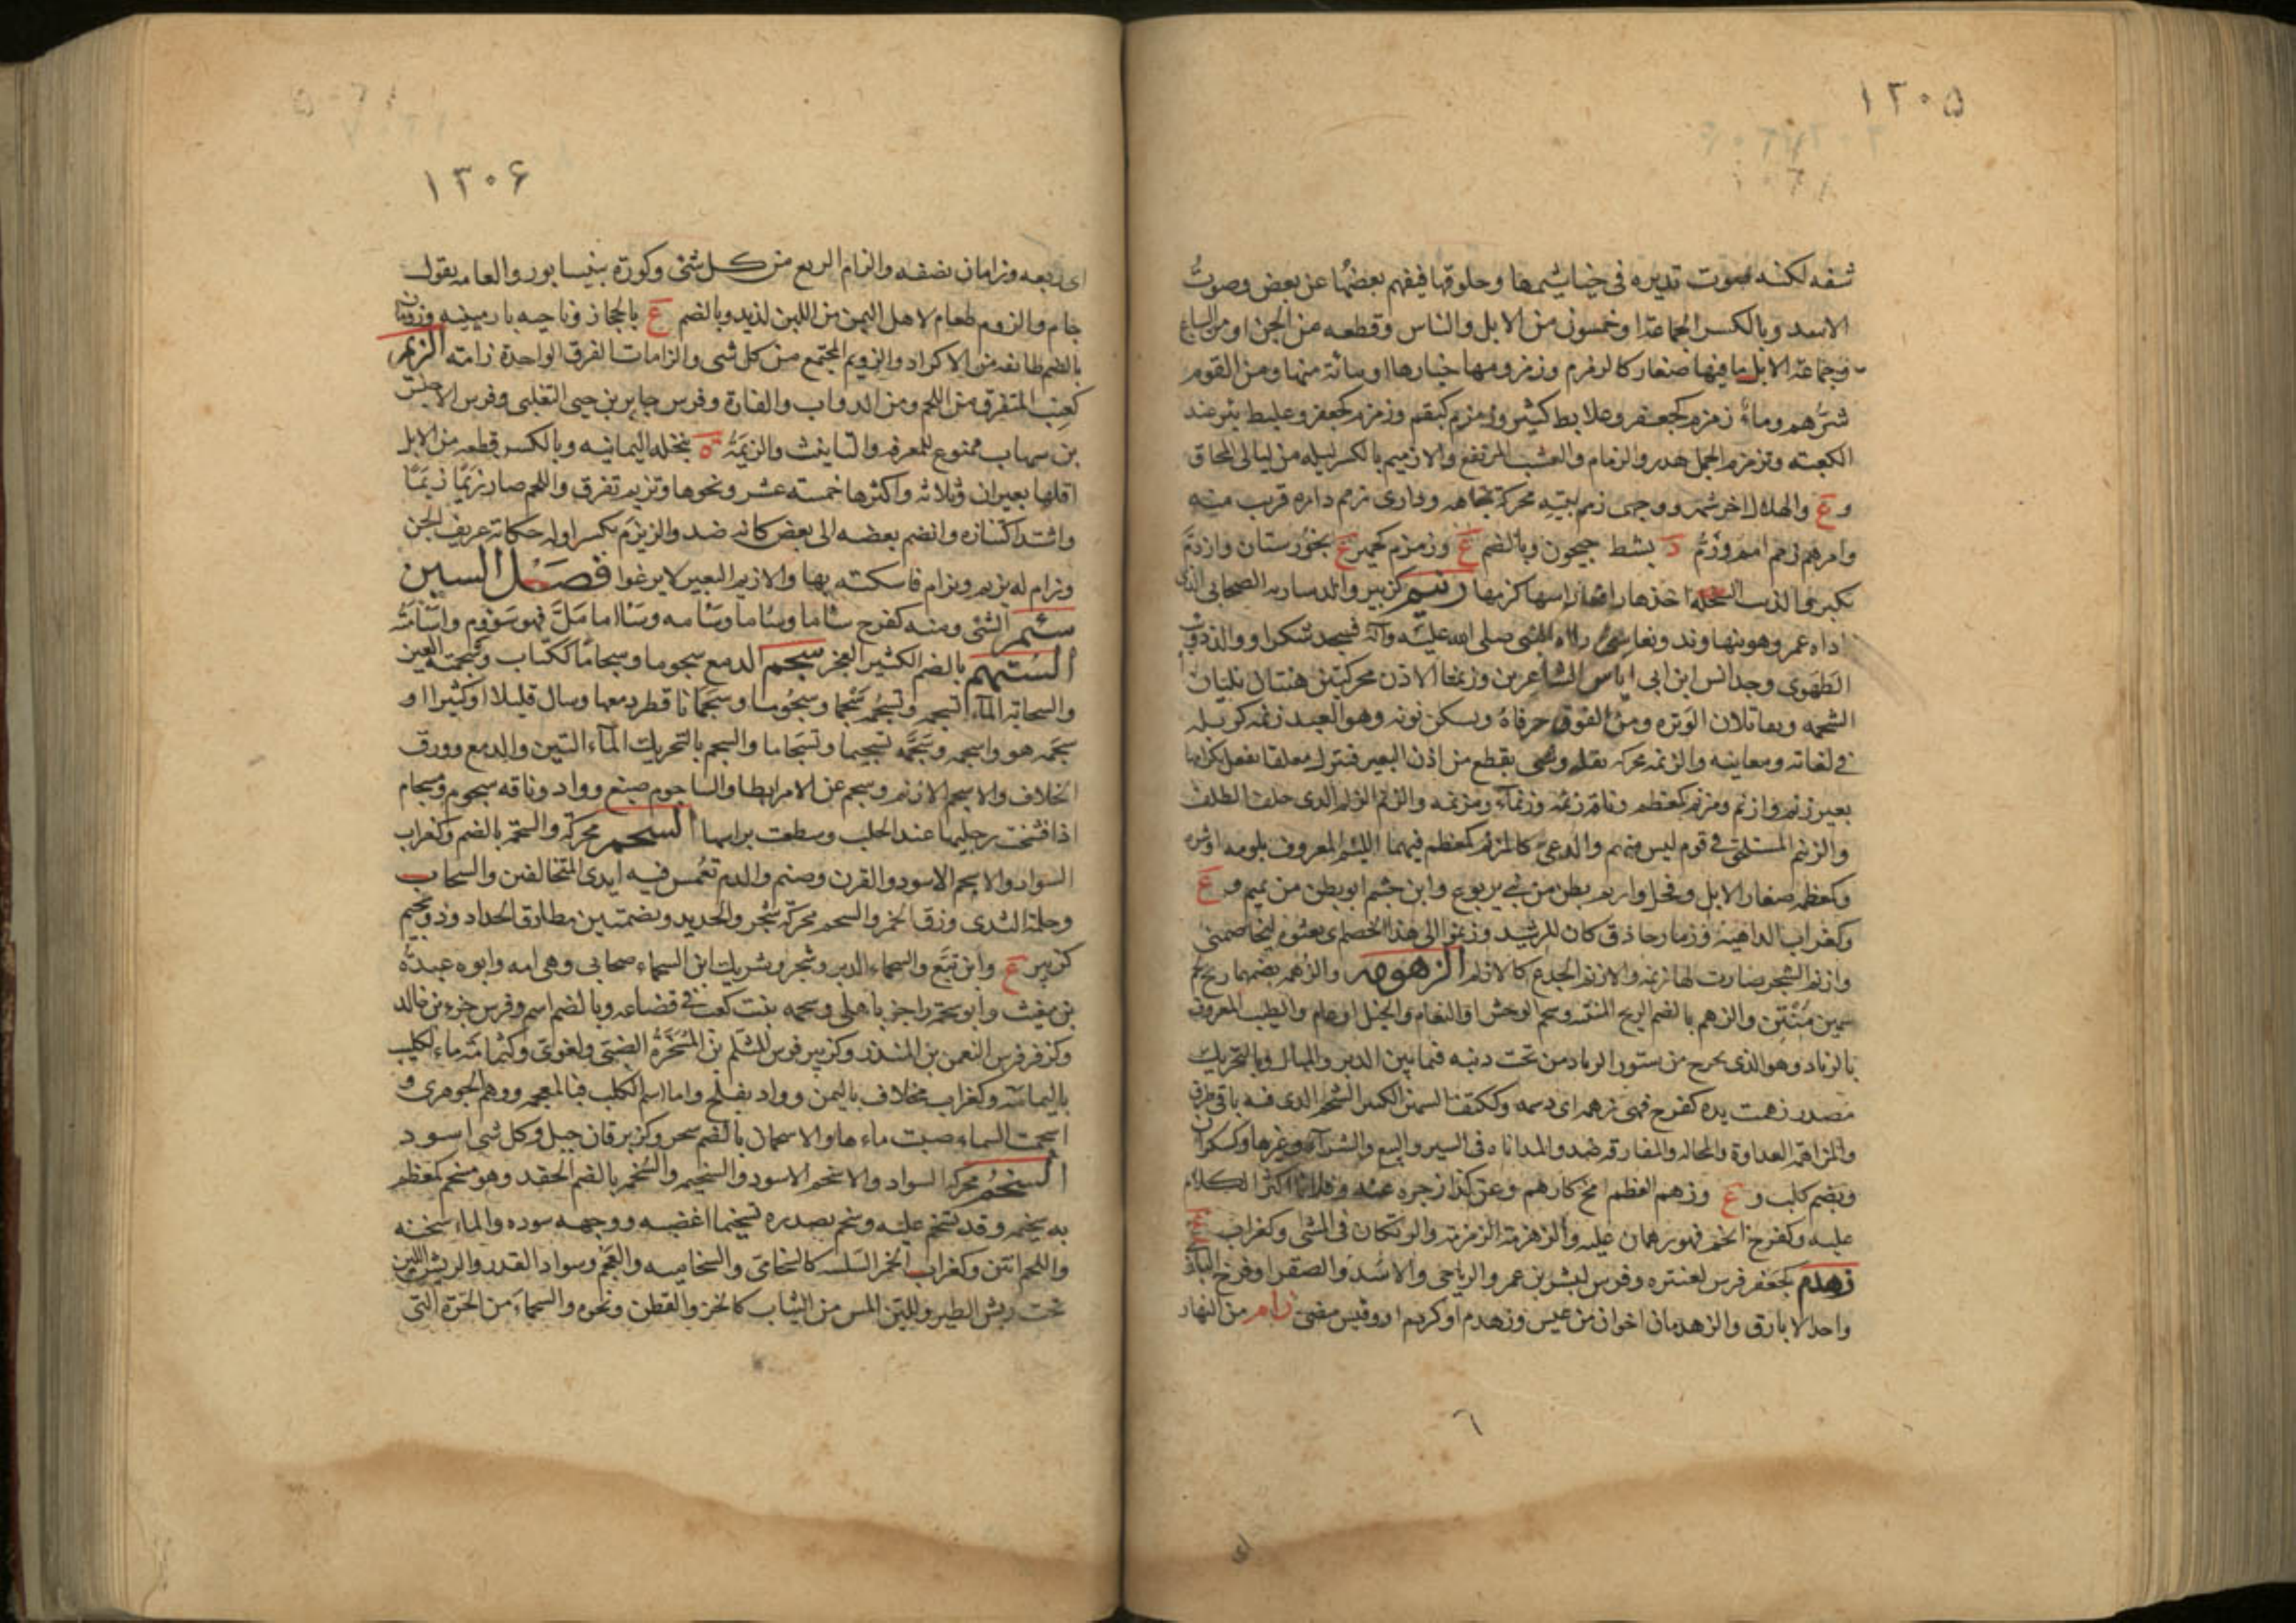 ۱۲۰۵
شفه لكنه صوت تديره فى خياشيمها وحلوقها فيفهم بعضها عن بعض وصوت
الاسد وبالكسر الجماعة او خمسون من الابل والناس وقطعه من الجن او من السباع
وجماعة الابل ما فيها صغار كالزمزم وزمزومها خيارها او مائة منها ومن القوم
شرهم وماء زمزم كجعفر وعلابط كثير وزمزم كبقم وزمزم كجعفر وعليط بئر عند
الكعبه وتزمزم الجمل هدر والزمام والعشب المرتفع والازميم بالكسر ليله من ليالى المحاق
و ع والهلال اخر شهر ووجهى زمم بيته محركة تجاهه ودارى زمم داره قريب منه
وامرهم زمم امم وزم د بشط جيحون وبالضم ع وزمزم كحمير ع بخوزستان وازدم
تكبر والذئب السخله اخذها رافعا راسها كزمها زنيم كزبير والد ساريه الصحابى الذى
ناداه عمر وهو بنهاوند ونغاشى راه النبى صلى الله عليه وآله فسجد شكرا ووالد ذويب
الطهوى وجد انس ابن ابى اياس الشاعرين وزنمتا الاذن محركتين هنتان تليان
الشحمه وتقابلان الوتره ومن الفوق حرفاه ويسكن نونه وهو العبد زنمه كوتيله
فى لغاته ومعاينه والزنمه محركه بقله وشى يقطع من اذن البعير فيترك معلقا يفعل بكرامها
بعير زنم وازنم ومزنم كمعظم وناقة زنمه وزنماء ومزنمه والزنم الزلم الذى خلف الظلف
والزنيم المستلحق فى قوم ليس منهم والدعى كالمزنم كمعظم فيهما اللئيم المعروف بلومه او شره
وكمعظم صغار الابل وفحل وازنم بطن من بنى يربوع وابن جشم ابو بطن من تميم و ع
وكغراب الداهيه وزمار حاذق كان للرشيد وزنموا الى هذا الخصم اى بعثوه ليخاصمنى
وازنم الشجر صارت لها زنمه والازنم الجذع كالازلم الزهومه والزهمه بضمهما ريح لحم
سمين منتن والزهم بالضم الريح المنتنه وشحم الوحش او النعام والخيل او عام والطيب المعروف
بالزباد وهو الذى يخرج من سنور الزباد من تحت ذنبه فيما بين الدبر والمبال وبالتحريك
مصدر زهمت يده كفرح فهى زهمه اى دسمه وككتف السمين الكثير الشحم الذى فيه باقى طرق
والمزاهمه العداوة والمحاله والمفارقه ضد والمداناه فى السير والبيع والشراء وغيرها وكسكران
وبضم كلب و ع وزهم العظم امخ كازهم وعن كذا زجره عنه وفلانا اكثر الكلام
عليه وكفرح اتخم فهو زهمان عليه والزهزمة الزمزمة والوتكان فى المشى وكغراب ع
زهدم كجعفر فرس لعنتره وفرس لبشر بن عمرو الرياحى والاسد والصقر او فرخ البازى
واحد الابارق والزهدمان اخوان من عبس وزهدم او كردم او وقيس مضى زام من النهار
٦
اى
۱۲۰۶
اى ربعه وزامان نصفه والزام الربع من كل شئ وكورة بنيسابور والعامه يقول
جام والزوم طعام لاهل اليمن من اللبن لذيد وبالضم ع بالحجاز وناحيه بارمينه وزومان
بالضم طائفه من الاكراد والزويم المجتمع من كل شى والزامات الفرق الواحدة زامه الزيم
كعنب المتفرق من اللحم ومن الدواب والغارة وفرس جابر بن حيى التغلبى وفرس الاخنس
بن شهاب ممنوع للمعرفه والتانيث والزيمة ه بنخله اليمانيه وبالكسر قطعه من الابل
اقلها بعيران وثلاثه واكثرها خمسه عشر ونحوها وتزيم تفرق واللحم صار زيما زيما
واشتد اكتنازه وانضم بعضه الى بعض كانه ضد والزيزيم بكسر اوله حكاية عزيف الجن
وزام له يزيم ويزام فاسكته بها والازيم البعير لا يرغوا فصل السين
سئم الشئ ومنه كفرح سأما وسأما وسآمه وسآما مل فهو سؤوم واسأمته
الستهم بالضم الكثير العجز سجم الدمع سجوما وسجاما ككتاب وسجمته العين
والسحابة الماء تسجمه وتسجمه سجما وسجوما وسجمانا قطر دمعها وسال قليلا او كثيرا او
سجمه هو واسجمه وسجمه تسجيما وتسجاما والسجم بالتحريك الماء التين والدمع وورق
الخلاف والاسجم الازيم وسجم عن الامر ابطا والساجوم صبغ وواد وناقه سجوم ومسجام
اذا فشخت رجليها عند الحلب وسطعت براسها السحم محركة والسحمه بالضم وكغراب
السواد والاسحم الاسود والقرن وصنم والدم تغمس فيه ايدى المتحالفين والسحاب
وحلمة الثدى وزق الخمر والسحم محركه شجر والحديد وبضمتين مطارق الحداد وذو سحيم
كزبير ع وابن تبع والسحماء الدبر وشجر وشريك ابن السحماء صحابى وهى امه وابوه عبدة
بن مغيث وابو سحمة راجز باهلى وسحمه بنت كعب فى قضاعه وبالضم اسم وفرس جزء بن خالد
وكزفر فرس النعمن بن المنذر وكزبير فرس المثلم بن المشخرة الضبى ولغوى وكثمامه ماء لكليب
باليمامه وكغراب مخلاف باليمن وواد بفلج واما اسم الكلب فبالمعجمه ووهم الجوهرى و
اسحمت السماء صبت ماءها والاسحمان بالضم شجر وكزبرقان جبل وكل شى اسود
السخم محركه السواد والاسخم الاسود والسخيم والسخمه بالضم الحقد وهو مسخم كمعظم
به سخيمه وقد تسخم عليه وسخم بصدره تسخيما اغضبه ووجهه سوده والماء سخنه
واللحم انتن وكغراب الخمر السلسه كالسخامى والسخاميه والفحم وسواد القدر والريش اللين
تحت ريش الطير واللين المس من الثياب كالخز والقطن ونحوه والسخماء من الحرة التى